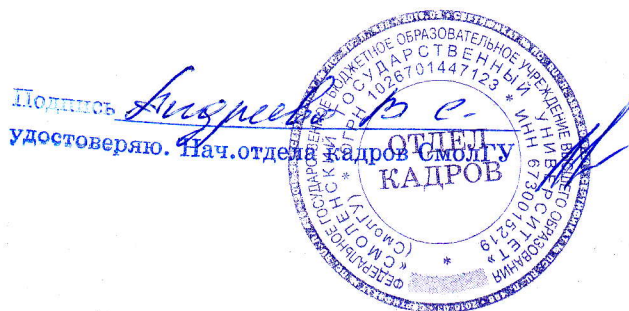 Подпись Андреева В С.
удостоверяю. Нач.отдела кадров СмолГУ
ФЕДЕРАЛЬНОЕ ГОСУДАРСТВЕННОЕ БЮДЖЕТНОЕ ОБРАЗОВАТЕЛЬНОЕ УЧРЕЖДЕНИЕ ВЫСШЕГО ОБРАЗОВАНИЯ
«СМОЛЕНСКИЙ ГОСУДАРСТВЕННЫЙ УНИВЕРСИТЕТ»
(СмолГУ) * ОГРН 1026701447123 * ИНН 6730015219
*
ОТДЕЛ
КАДРОВ